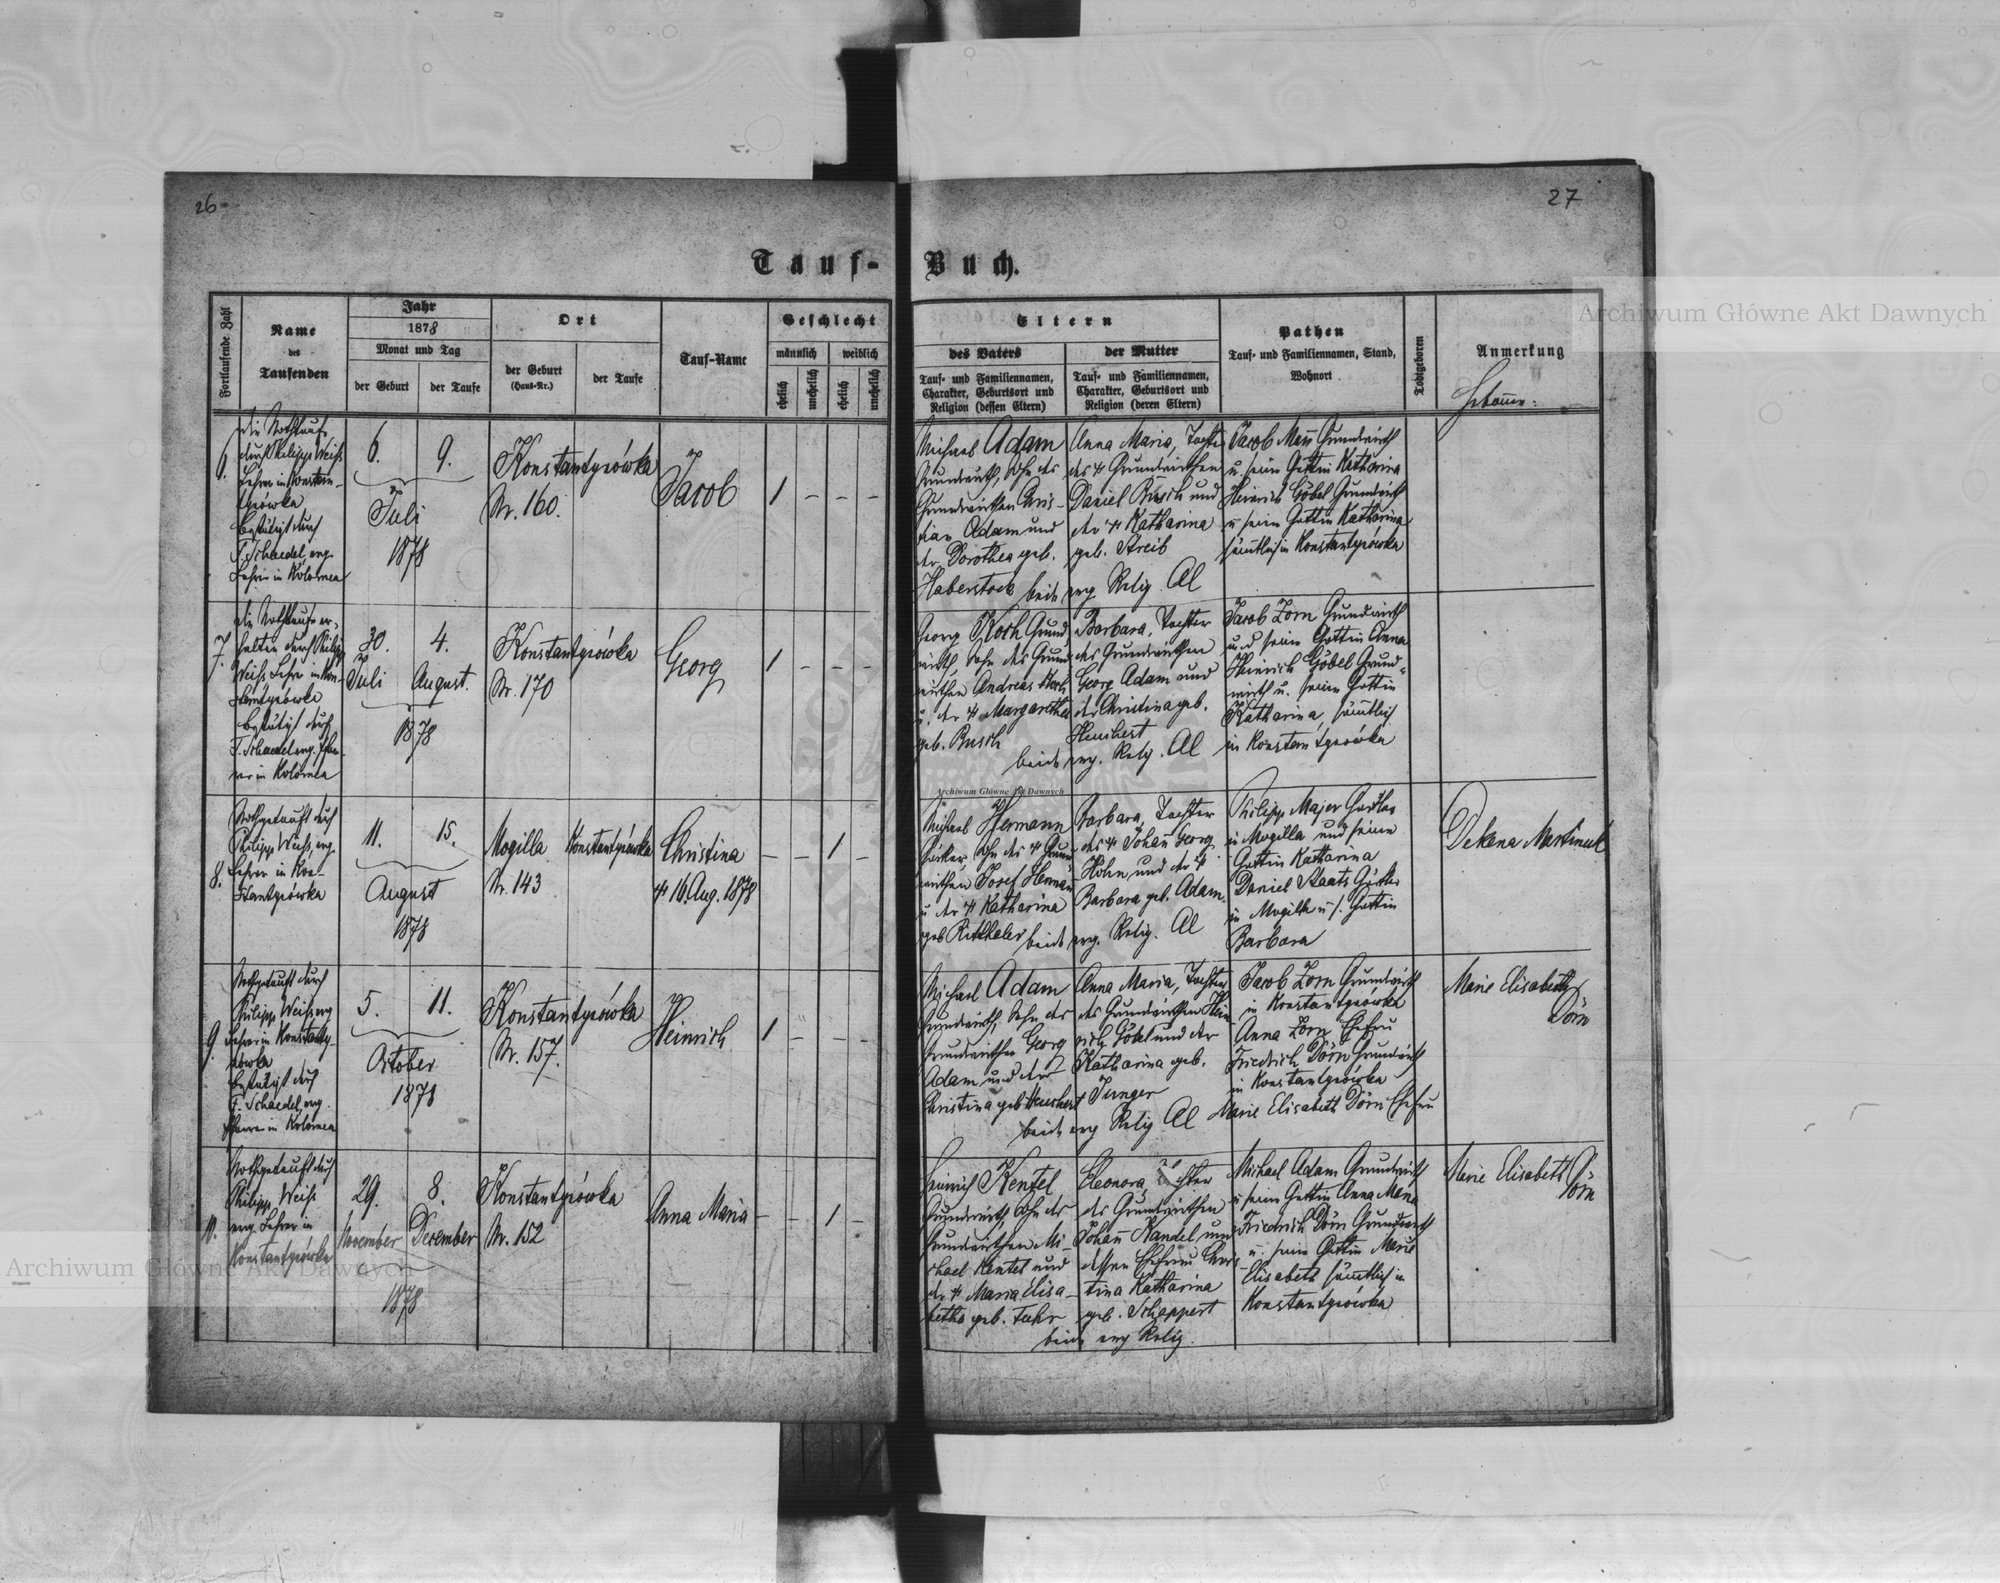 26
27
Tauf-
Buch.
Fortlaufende Zahl
Name
des
Taufenden
Jahr
1878
Monat und Tag
der Geburt
der Taufe
Ort
der Geburt
(Haus-Nr.)
der Taufe
Tauf-Name
Geschlecht
männlich
weiblich
ehelich
unehelich
ehelich
unehelich
Eltern
des Vaters
Tauf- und Familiennamen,
Charakter, Geburtsort und
Religion (dessen Eltern)
der Mutter
Tauf- und Familiennamen,
Charakter, Geburtsort und
Religion (deren Eltern)
Pathen
Tauf- und Familiennamen, Stand,
Wohnort
Todtgeboren
Anmerkung
6.
die Nothtaufe
durch Philipp Weiß
Lehrer in Konstan-
tyowka
bestätigt durch
F. Schaedel, evg.
in Kolomea
6.
9.
Juli
1878
Konstantyówka
Nr. 160.
Jacob
1 - - -
Michael Adam
Grundwirth, Sohn des
Grundwirthen Chris-
tian Adam und
der Dorothea geb.
Haberstock
Anna Maria, Tochter
des † Grundwirthen
Daniel Busch und
der † Katharina
geb. Streib
beide evg. Relig. Al
Jacob Grundwirth
u. seine Gattin Katharina
Heinrich Göbel Grundwirth
u. seine Gattin Katharina
sämtlich in Konstantyówka
7.
die Nothtaufe er-
halten durch Philipp
Weiß, Lehrer in Kon-
stantyówka
bestätigt durch
F. Schaedel evg. Pfar-
rer in Kolomea
30.
4.
Juli
August.
1878
Konstantyówka
Nr. 170
Georg
1 - - -
Georg Koch Grund
wirth, Sohn des Grund
wirthen Andreas Koch
u. der † Margaretha
geb. Busch
Barbara, Tochter
des Grundwirthen
Georg Adam und
der Christina geb.
Heuchert
beide evg. Relig. Al
Jacob Zorn Grundwirth
und seine Gattin Anna
Heinrich Göbel Grund-
wirth u. seine Gattin
Katharina, sämtlich
in Konstantyówka
8.
Nothgetauft durch
Philipp Weiß, evg.
Lehrer in Kon-
stantyówka
11.
15.
August
1878
Mogilla
Nr. 143
Konstantyówka
Christina
† 16 Aug. 1878
- - 1 -
Michael Hermann
Gärtler, Sohn des † Grund
wirthen Josef Herman
u. der † Katharina
geb.
Barbara, Tochter
des † Johan Georg
Höhn, und der †
Barbara geb. Adam.
beide evg. Relig. Al
Philipp Majer Gärtler
in Mogilla und seine
Gattin Katharina
Daniel Staats Gärtler
in Mogilla u. s. Gattin
Barbara
9.
Nothgetauft durch
Philipp Weiß evg
Lehrer in Konstanty-
ówka
bestätigt durch
F. Schaedel, evg.
Pfarrer in Kolomea
5.
11.
October
1878
Konstantyówka
Nr. 157.
Heinrich
1 - - -
Michael Adam
Grundwirth, Sohn des
Grundwirthen Georg
Adam und der
Christina geb Heuchert
Anna Maria, Tochter
des Grundwirthen Hein-
rich Göbel und der
Katharina geb.
Junger
beide evg Relig Al
Jacob Zorn Grundwirth
in Konstantyówka
Anna Zorn Ehefrau
Friedrich Dörn Grundwirth
in Konstantyówka
Marie Elisabeth Dörn Ehefrau
Marie Elisabeth
Dörn
10.
Nothgetauft durch
Philipp Weiß
evg. Lehrer in
Konstantyówka
29.
8.
November
December
1878
Konstantyówka
Nr. 152
Anna Maria
- - 1 -
Heinrich Kentel
Grundwirth, Sohn des
Grundwirthen Mi-
chael Kentel und
der † Maria Elisa-
betha geb. Fuhr
Eleonora Tochter
des Grundwirthen
Johan Kandel und
dessen Ehefrau Chris-
tina Katharina
geb. Schappert
beide evg Relig.
Michael Adam Grundwirth
u. seine Gattin Anna Maria
Friedrich Dörn Grundwirth
u. seine Gattin Marie
Elisabeth sämtlich in
Konstantyówka
Marie Elisabeth
Dörn
Archiwum Główne Akt Dawnych
Archiwum Główne Akt Dawnych
Archiwum Główne Akt Dawnych